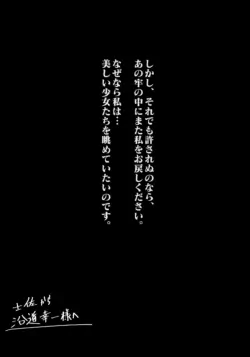 しかし、それでも許されぬのなら、
あの牢の中にまた私をお戻しください。
なぜなら私は…
美しい少女たちを眺めていたいのです。
土佐
幸一様へ